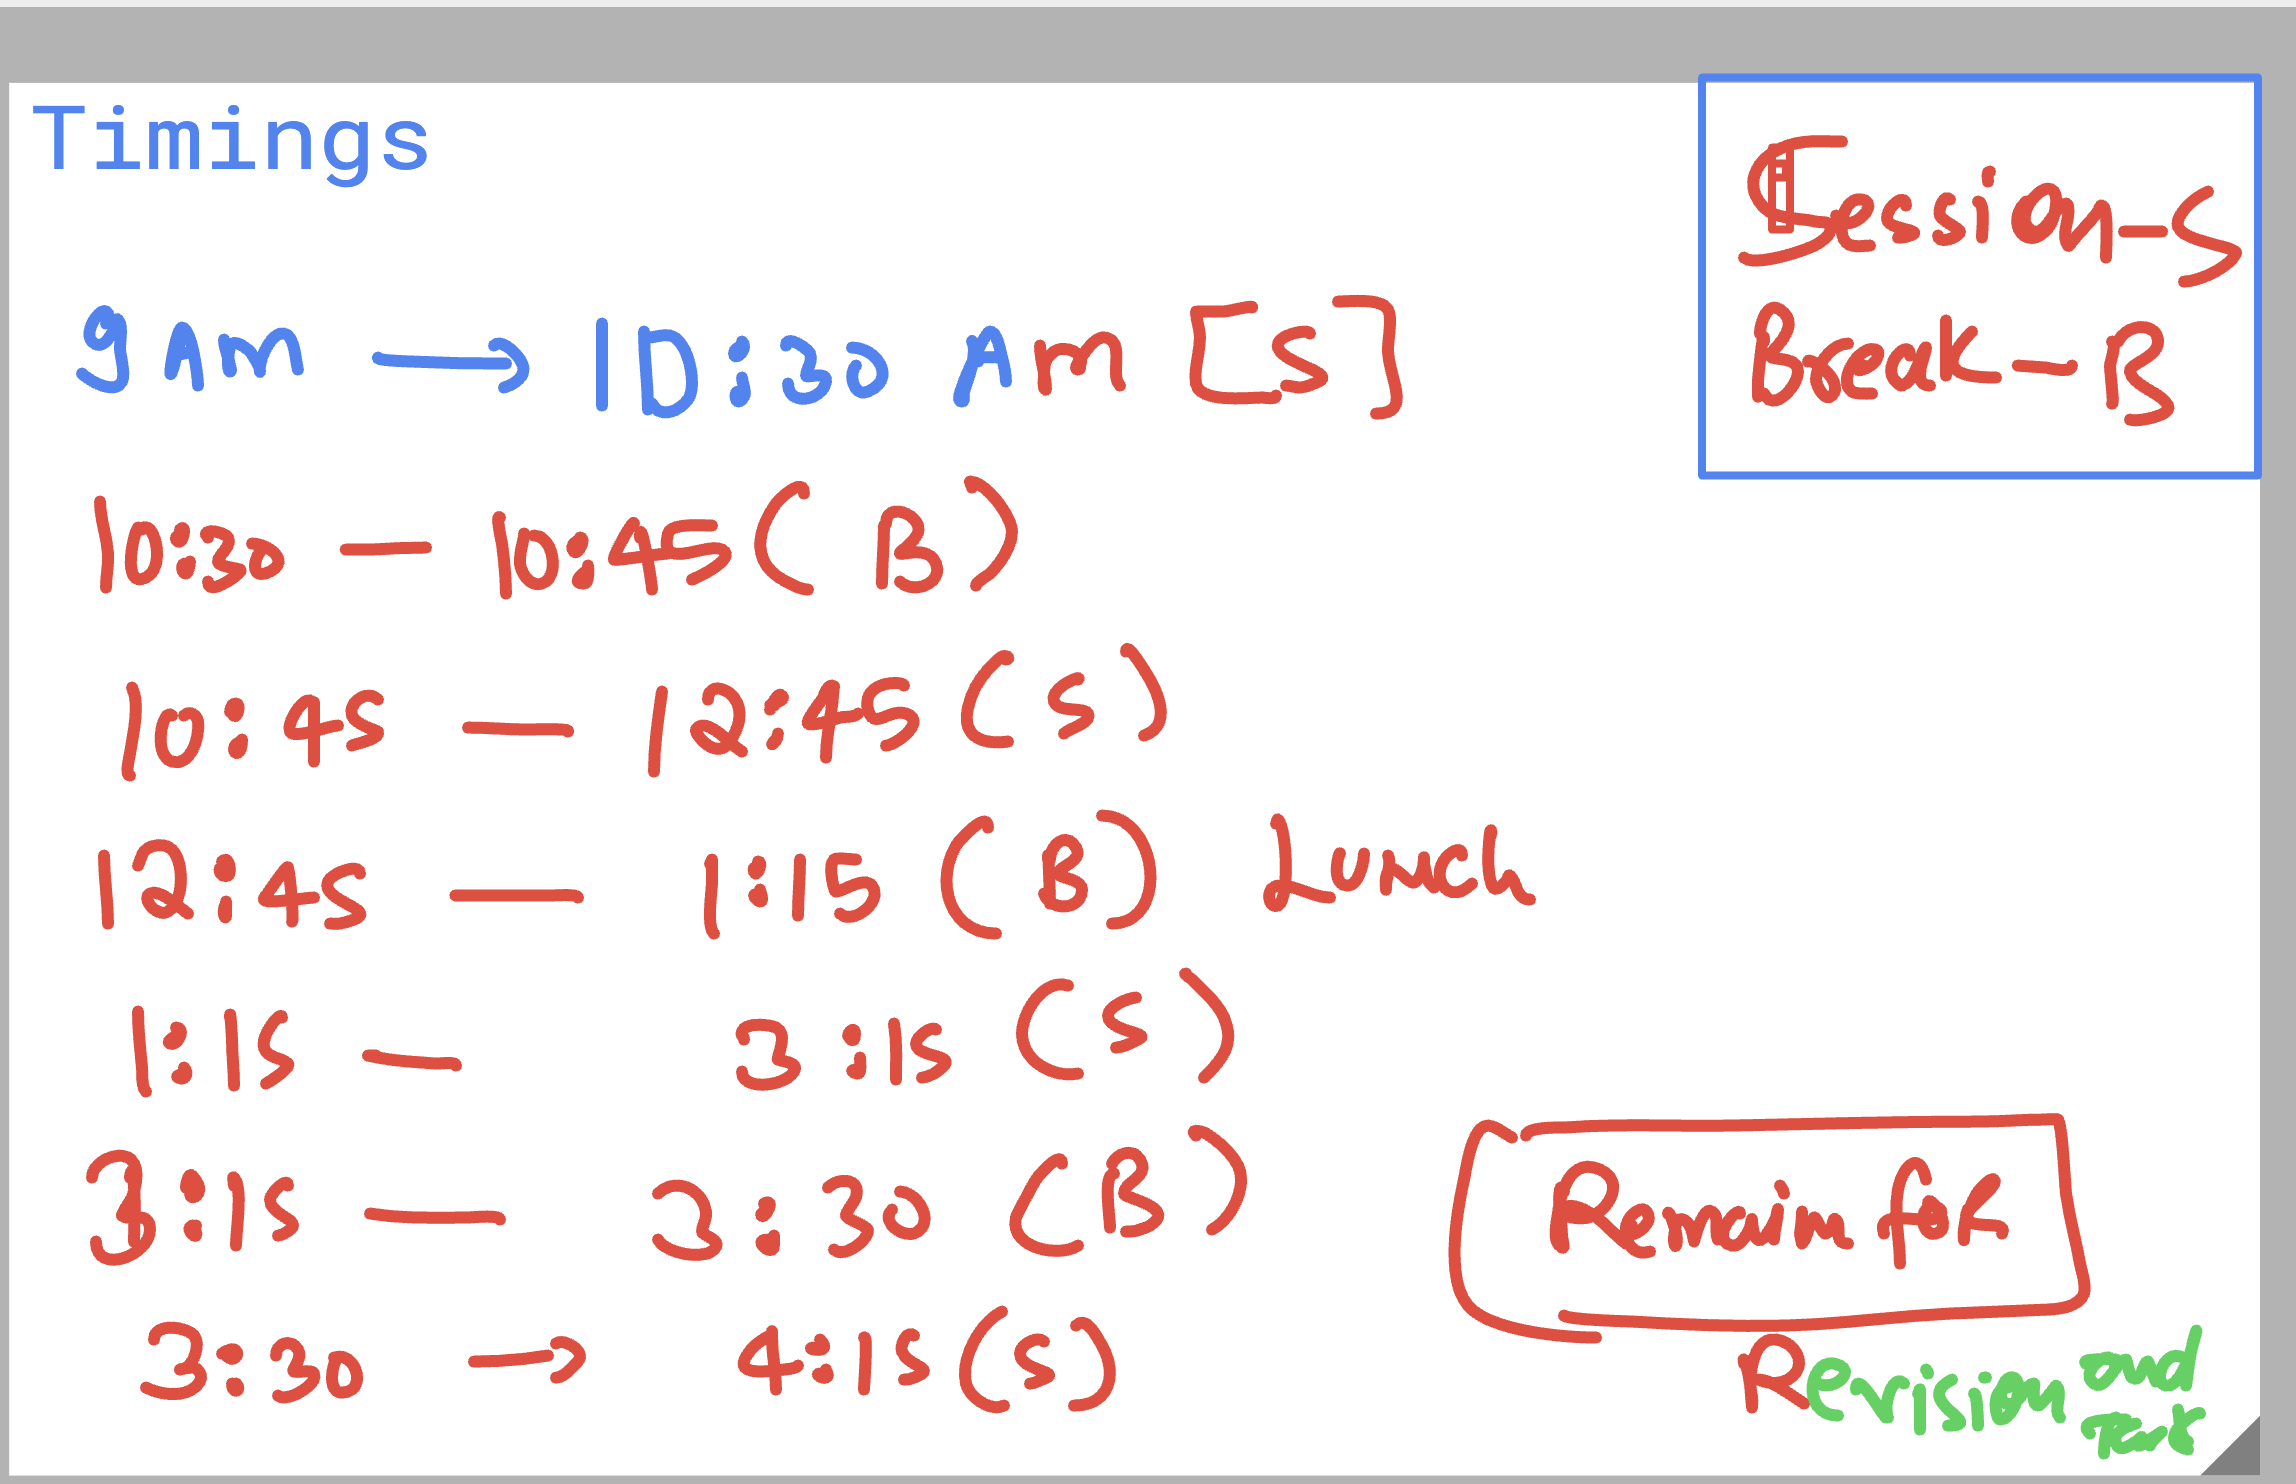 Timings
Session-S
Break-B
9 AM → 10:30 Am [S]
10:30 — 10:45 (B)
10:45 — 12:45 (S)
12:45 — 1:15 (B) Lunch
1:15 — 3:15 (S)
3:15 — 3:30 (B)
3:30 → 4:15 (S)
Remain for
Revision and